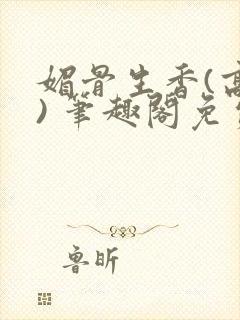 媚骨生香(高
)笔趣阁免
鲁昕